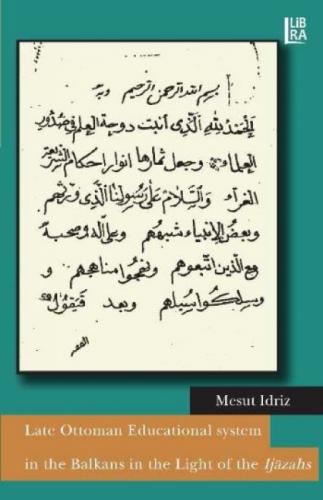 LiBRA
بسم الله الرحمن الرحيم وبه
الحمد لله الذي انبت دوحة العلم في صدور
العلماء وجعل ثمارها انوار احكام الشريعة
الغراء والسلام على رسولنا الذي ورثهم
وبعض الانبياء شبههم وعلى اله وصحبه
مع الذين اتبعوهم ونهجوا مناهجهم و
وسلكوا سبيلهم وبعد فيقول
Mesut Idriz
Late Ottoman Educational system
in the Balkans in the Light of the Ijāzahs